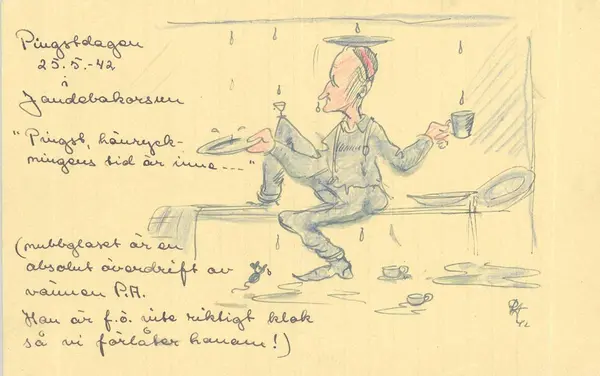 Pingstdagen
25.5.-42
i
Jandebakorsun
"Pingst, hänryck-
ningens tid är inne ---"
(nubbglaset är en
absolut överdrift av
vännen P.A.
Han är f.ö. inte riktigt klok
så vi förlåter honom!)